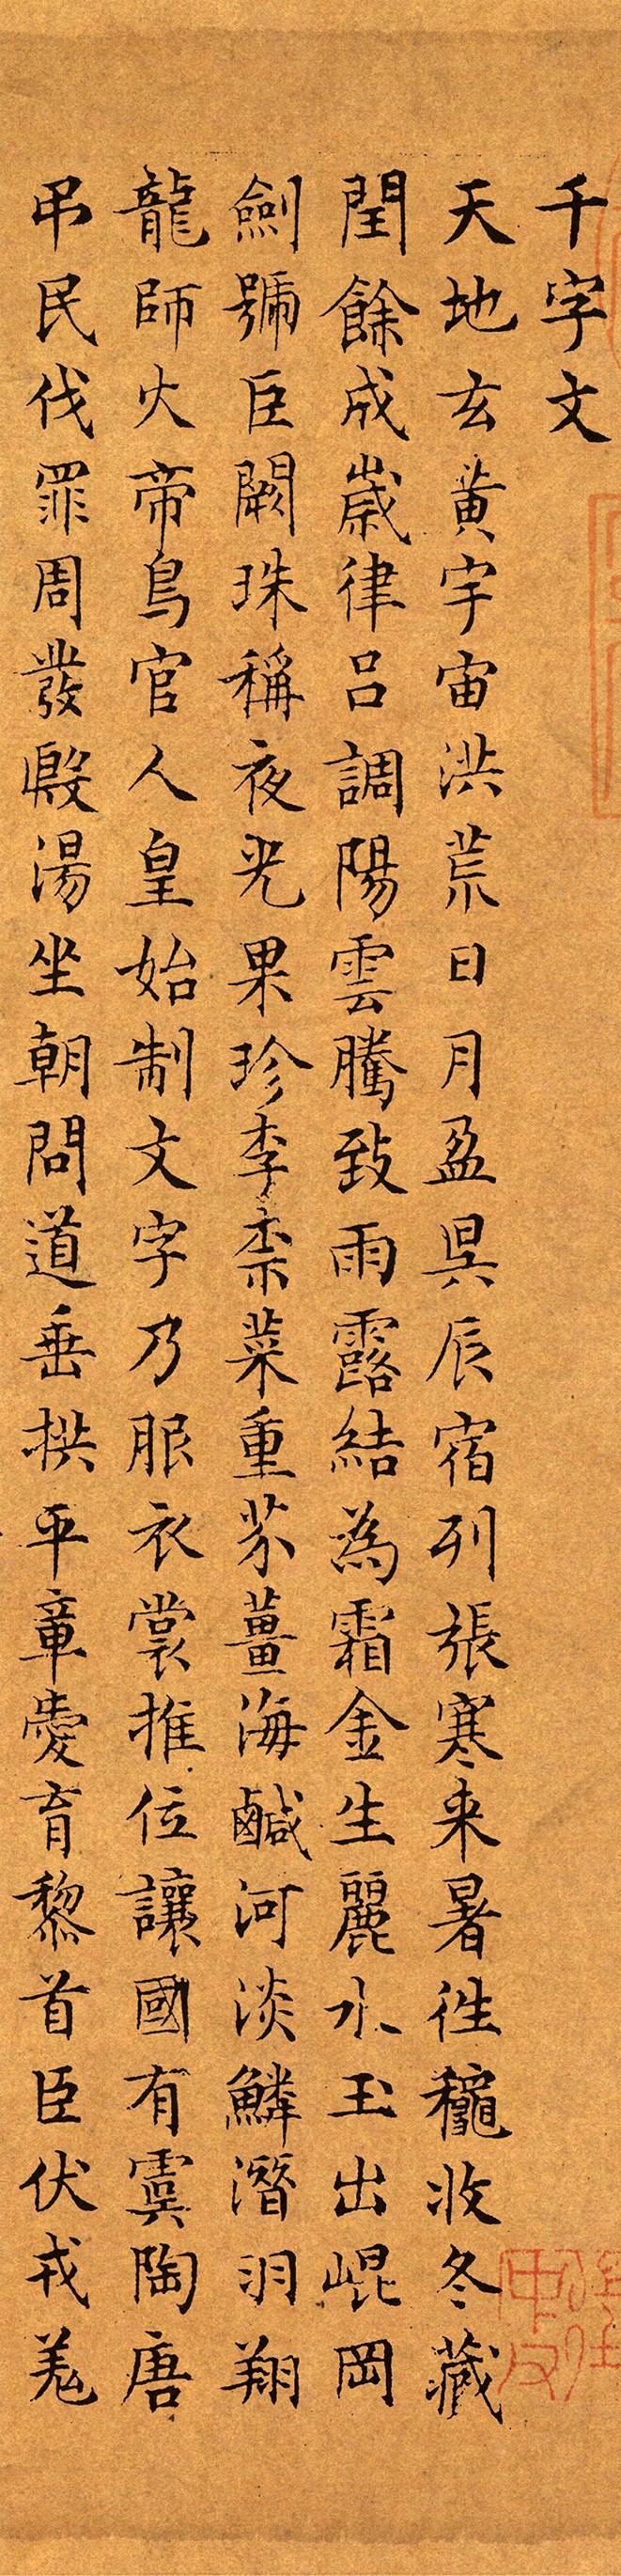 千字文
天地玄黃宇宙洪荒日月盈昃辰宿列張寒来暑往龝收冬藏
閏餘成歲律呂調陽雲騰致雨露結為霜金生麗水玉出崐岡
劍號巨闕珠稱夜光果珍李柰菜重芥薑海鹹河淡鱗潛羽翔
龍師火帝鳥官人皇始制文字乃服衣裳推位讓國有虞陶唐
吊民伐罪周發殷湯坐朝問道垂拱平章愛育黎首臣伏戎羌